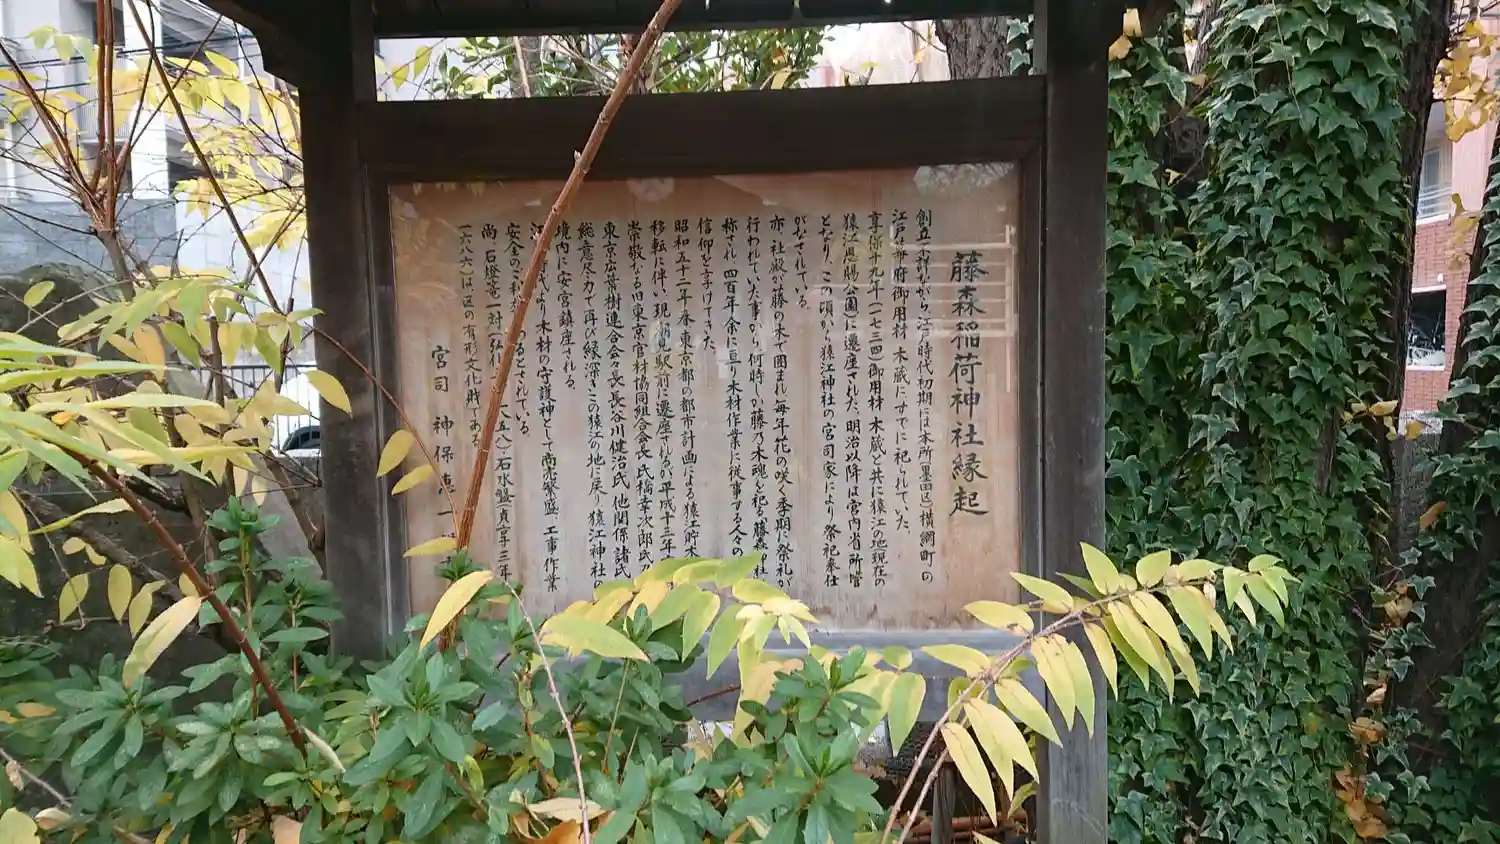 藤森稲荷神社縁起
創立
ながら江戸時代初期には本所(墨田区)横網町の
江戸幕府御用材木蔵にすでに祀られていた。
享保十九年(一七三四)御用材木蔵と共に猿江の地(現在の
猿江恩賜公園)に遷座された。明治以降は宮内省所管
となり、この頃から猿江神社の宮司家により祭祀奉仕
がなされている。
亦、社殿が藤の木で囲まれ毎年花の咲く季期に祭礼が
行われていた事から何時しか藤乃木魂を祀る藤森
社
称され、四百年余に亘り木材作業に従事する人々の
信仰を享けてきた。
昭和五十二年春、東京都の都市計画による猿江貯木
移転に伴い、現
駅前に遷座されるが、平成十三年
崇敬なる旧東京官材協同組合会長氏橋幸次郎氏
東京広葉樹連合会々長長谷川健治氏、他関係諸氏
総意尽力で再び縁深きこの猿江の地に戻り猿江神社
境内に安宮鎮座される。
江
より木材の守護神として商売繁盛、工事作業
安全のご利
のるとされている。
尚、石燈篭一対(弘化
八五八)石水盤(貞享三年
一六八六)は、区の有形文化財である。
宮司 神保